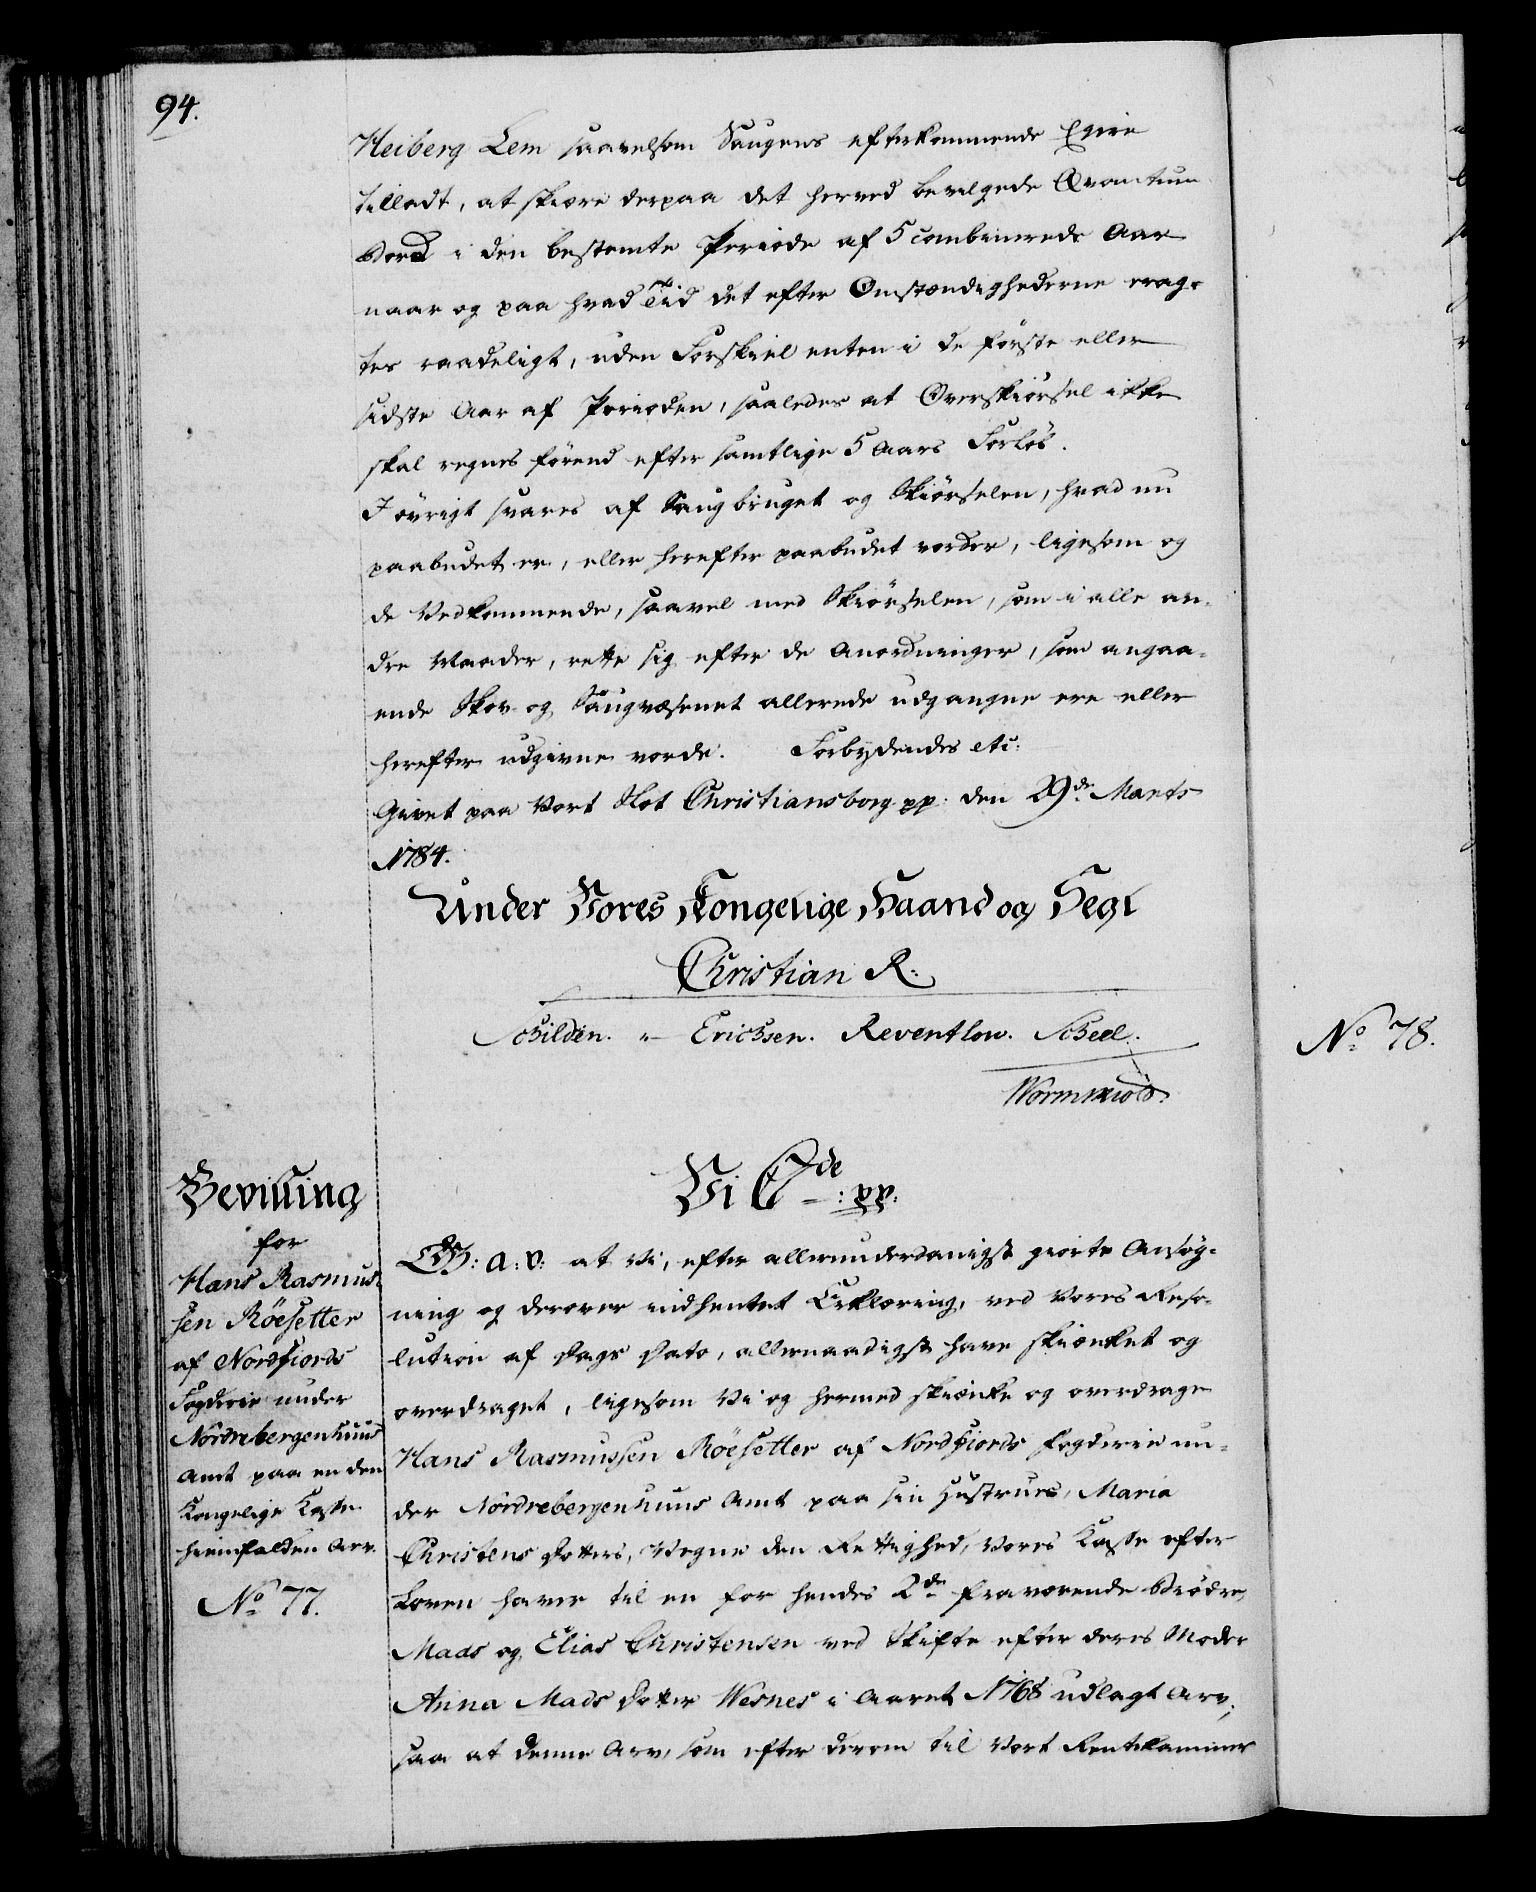 94.
Heiberg Lem saavelsom Saugens efterkommende Eyere
tilladt, at skiære derpaa det herved bevilgede Qvantum
Bord i den bestemte Periode af 5 combinerede Aar
naar og paa hvad Tid det efter Omstændighederne erag-
tes raadeligt, uden Forskiel enten i de förste eller
sidste Aar af Perioden, saaledes at Overskiörsel ikke
skal regnes förend efter samtlige 5 Aars Forlöb.
I övrigt svares af Saugbruget og Skiörselen, hvad nu
paabudet er, eller herefter paabudet vorder, ligesom og
de Vedkommende, saavel med Skiörselen, som i alle an-
dre Maader, rette sig efter de Anordninger, som angaa-
ende Skov- og Saugvæsenet allerede udgangne ere eller
herefter udgivne vorde. Forbydendes etc:
Givet paa Vort Slot Christiansborg pp: den 29de Marts
1784.
Under Vores Kongelige Haand og Segl
Christian R:
Schilden. Erichsen. Reventlow. Scheel.
Wormskiold.
Bevilling
for
Hans Rasmus-
sen Röesetter
af Nordfiords
Fogderie under
Nordrebergenhuus
Amt paa en den
Kongelige Kasse
hiemfalden Arv.
No 77.
Vi C 7de: pp:
G: A: V: at Vi, efter allerunderdanigst giorte Ansøg-
ning og derover indhentet Erklæring, ved Vores Reso-
lution af Dags Dato, allernaadigst have skiænket og
overdraget, ligesom Vi og hermed skiænke og overdrage
Hans Rasmussen Röesetter af Nordfiords Fogderie un-
der Nordrebergenhuus Amt paa sin Hustrues, Maria
Christens Datters, Vegne den Rettighed, Vores Kasse efter
Loven haver til en for hendes 2de fraværende Brödre,
Mads og Elias Christensen ved Skifte efter deres Moder
Anna Mads Datter Wesnes i Aaret 1768 udlagt Arv;
saa at denne Arv, som efter derom til Vort Rentekammer
No 78.